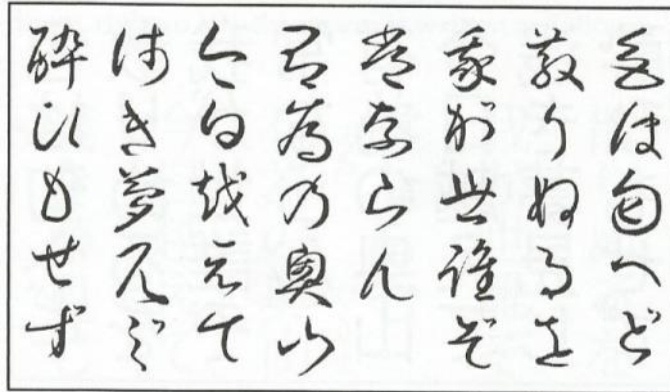 色は匂へど
散りぬるを
我が世誰ぞ
常ならん
有為の奥山
今日越えて
浅き夢見じ
酔ひもせず